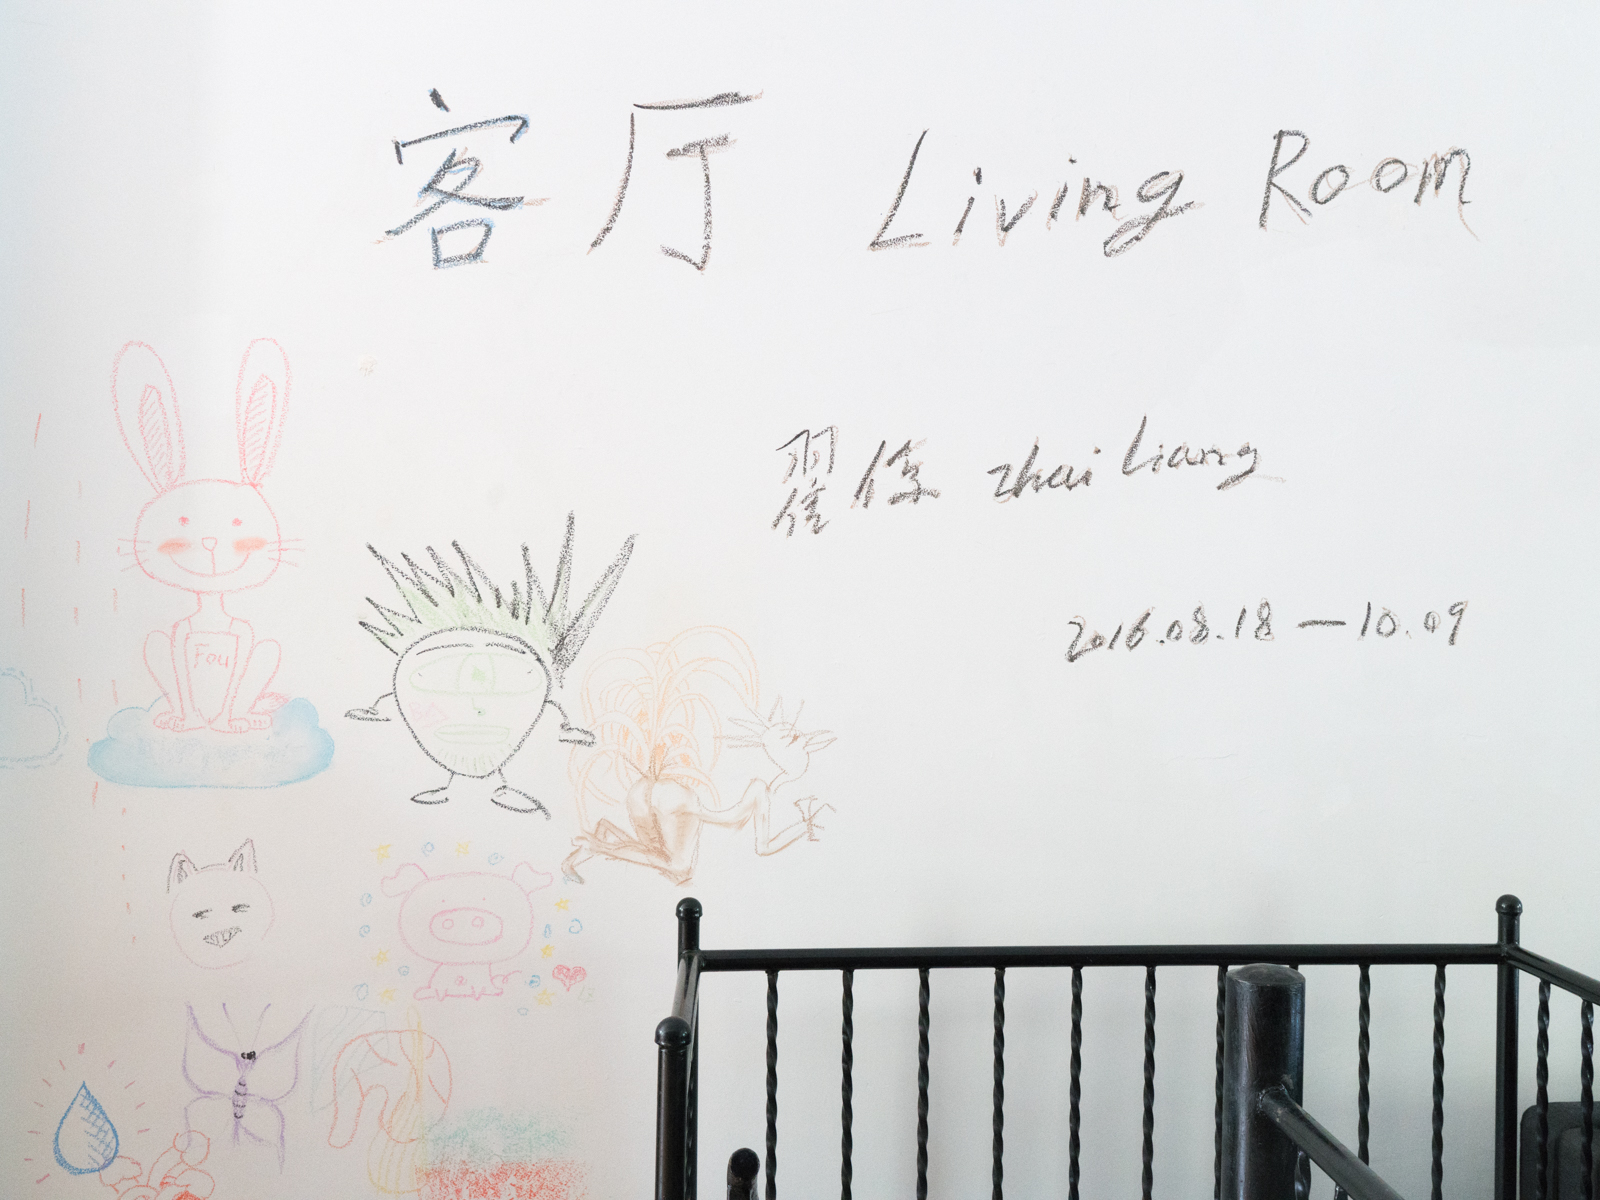 客厅 Living Room
翟倞 zhai Liang
2016.08.18 — 10.09
Fou